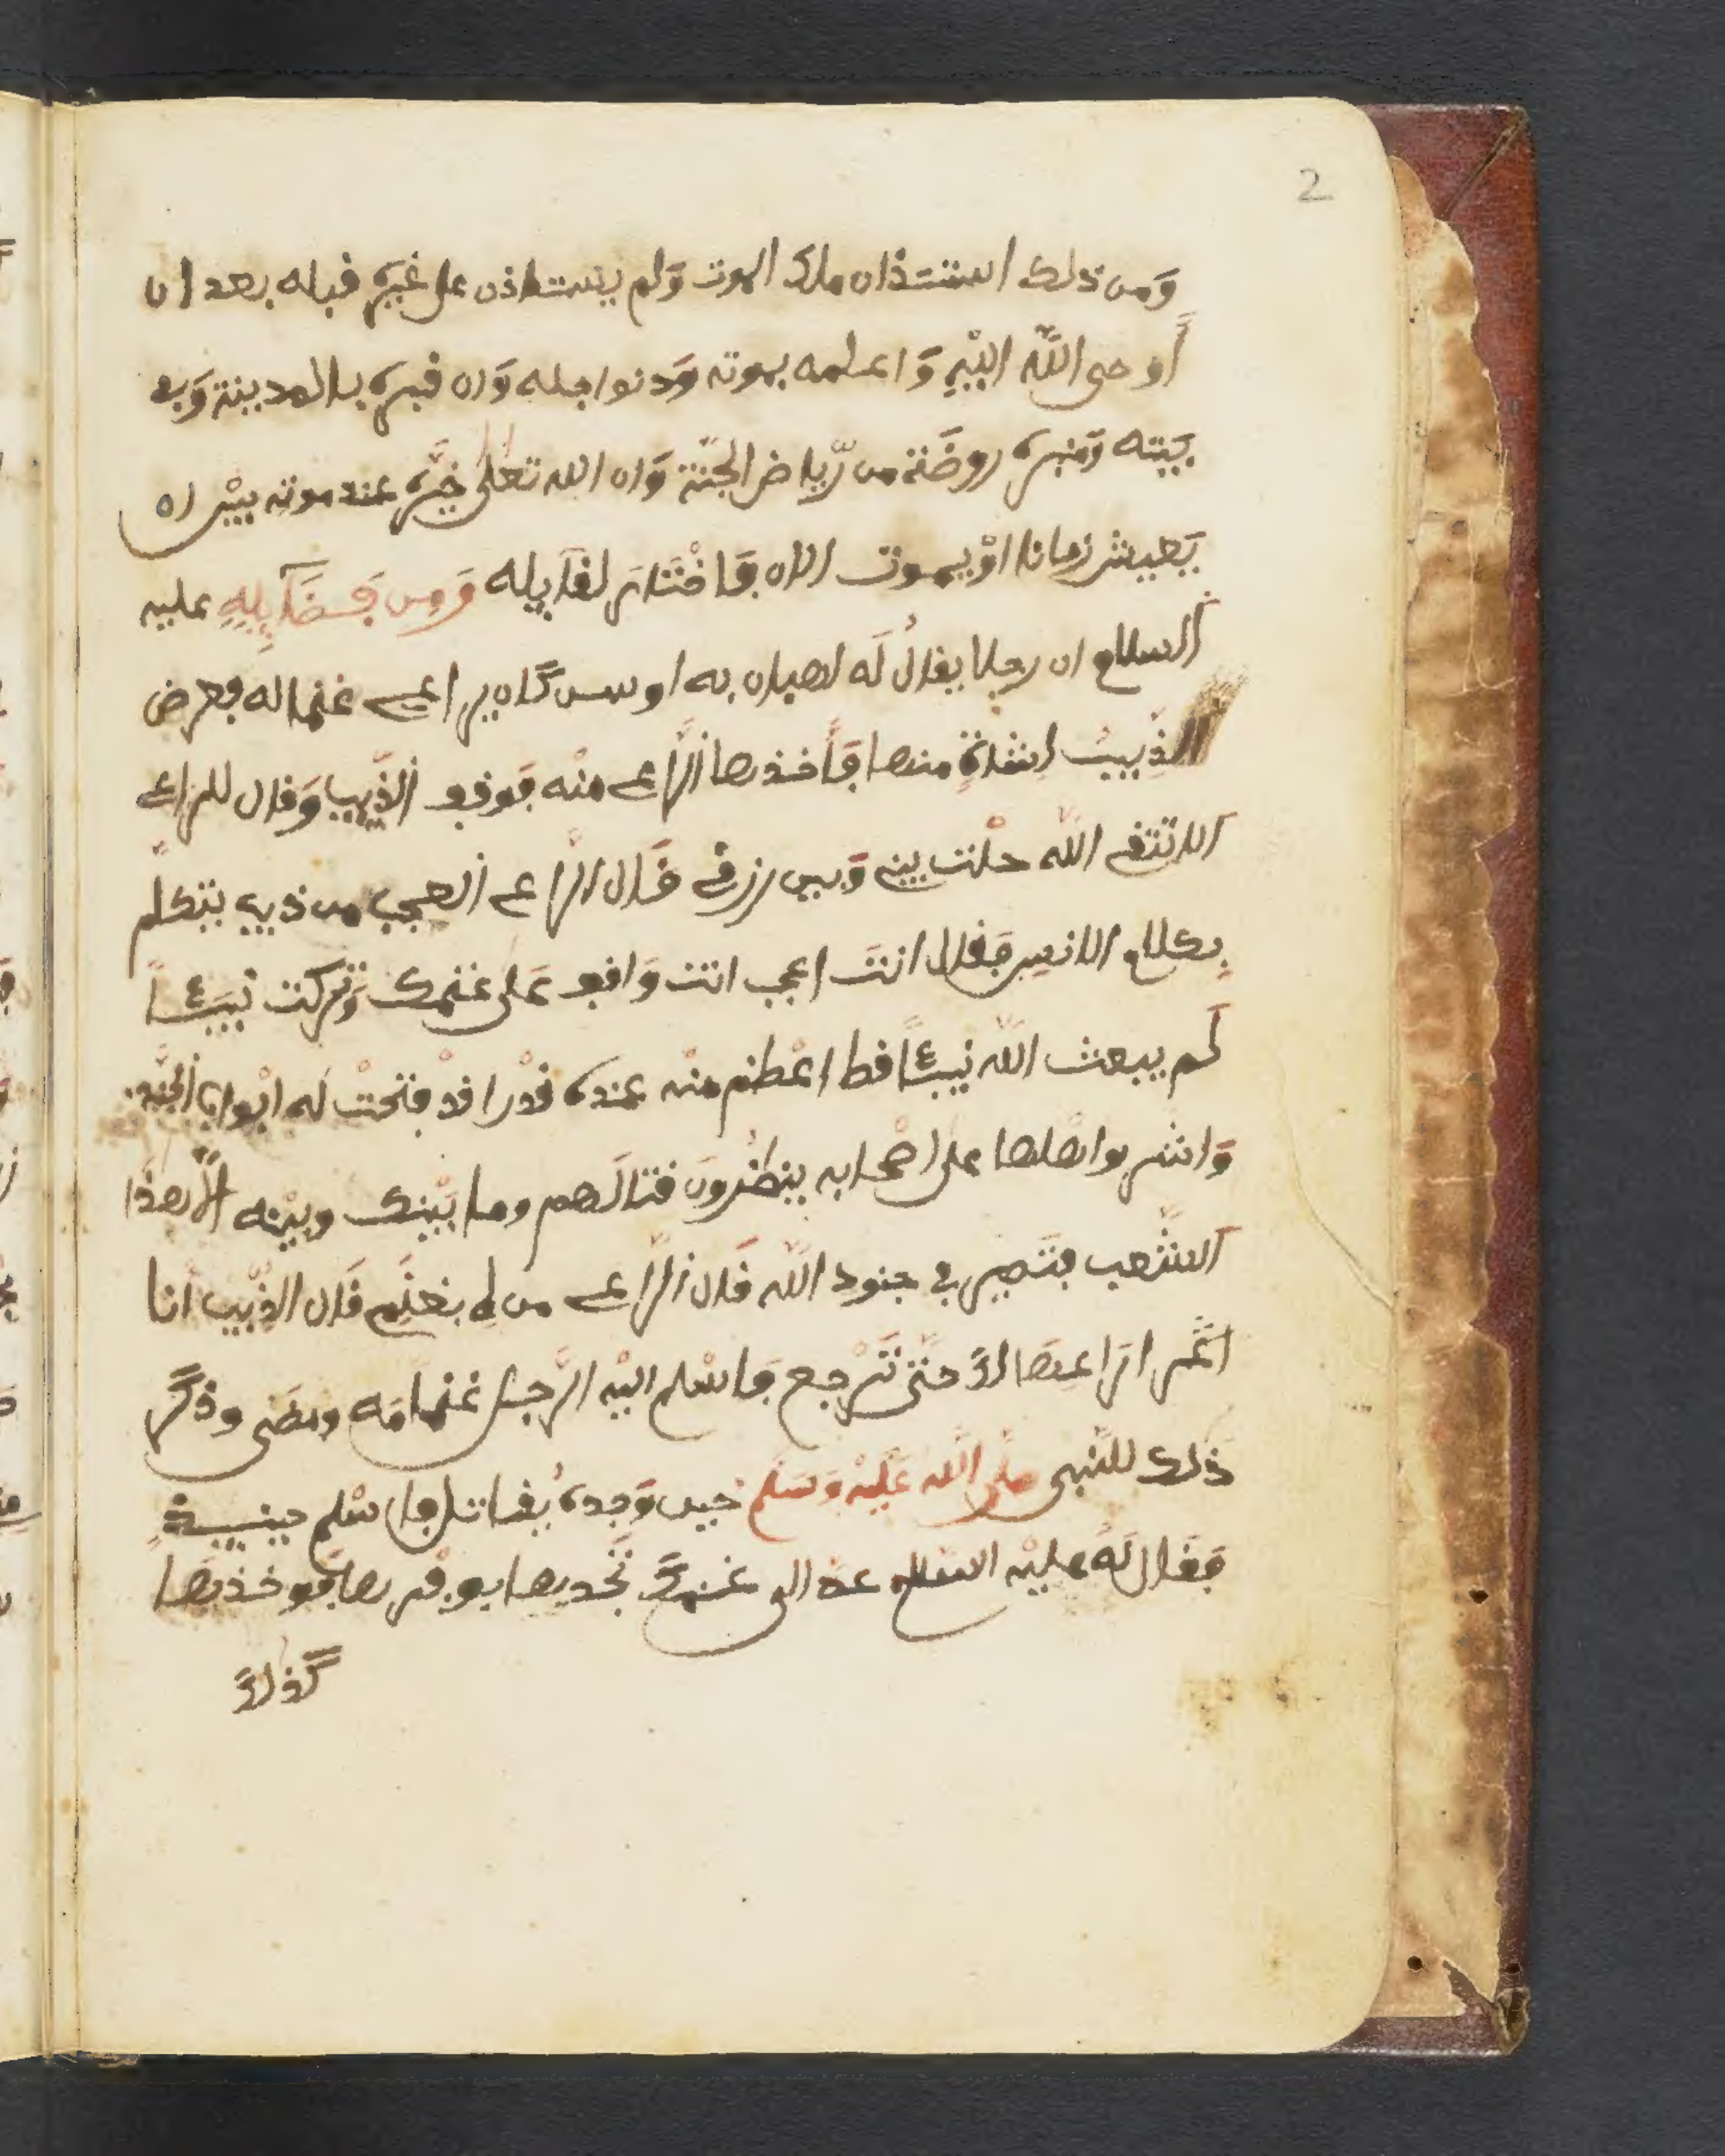 2
وَمن ذلك استتذان ملك الموت وَلم يستاذن على غيره قبله بعد ان
أوحى اللّه اليْهِ وَاعلمه بموته وَدنوا جله وَان قبره بالمدينة وَبه
بَيته وَمنبره روضَة من رّياض الجنّة وَان الله تعلى خيَّره عند موته بيْن ان
يَعيش زمانا اوْ يموت الان فَاخْتَار لقآيله وَمِن فَضَآيِلِهِ عليه
السلام ان رجلا يقالُ لَه اهبان به اوس كَان يراعى غنما له فعرض
الذِّيبُ لشاةٍ منها فَأَخذها الرَّاعى منْه فوقف الذّيب وَقال للراعى
الا تتقى اللّه حلْت بينى وَبين رزقى قَال الرّاعى العجب من ذيب يتكلّم
بِكلام الانس فَقال انتَ اعجب انت وَاقف عَلى غنمك وَتركت نبيئاً
لَم يبعث اللّه نبيئاً قط اعْظم منْه عنده قدْرا قدْ فتحتْ لَه ابْواب الجنَّة
وَاشرب اهْلها على اصْحابه ينظُرونَ قتالَهم وما بيْنك وبيْنه الّا هذَا
الشّعب فتَصير فى جنود اللّه قَال الرّاعى من لِى بغنَمِى قَال الذِّيب انا
ارَاعيَها لكَ حتّى تَرْجع فاسْلم اليْه الرّجل غنمامَه ومَضى وذكَر
ذَلك للنّبى صلى اللّه عَليْه وَسَلم حيِن وَجده يُقاتل فاسْلم حينيذٍ
فَقال لَهُ عليْه السَلام عدْ الى غنمكَ تَجدها بوفْرها فوخذهَا
كَذلكَ